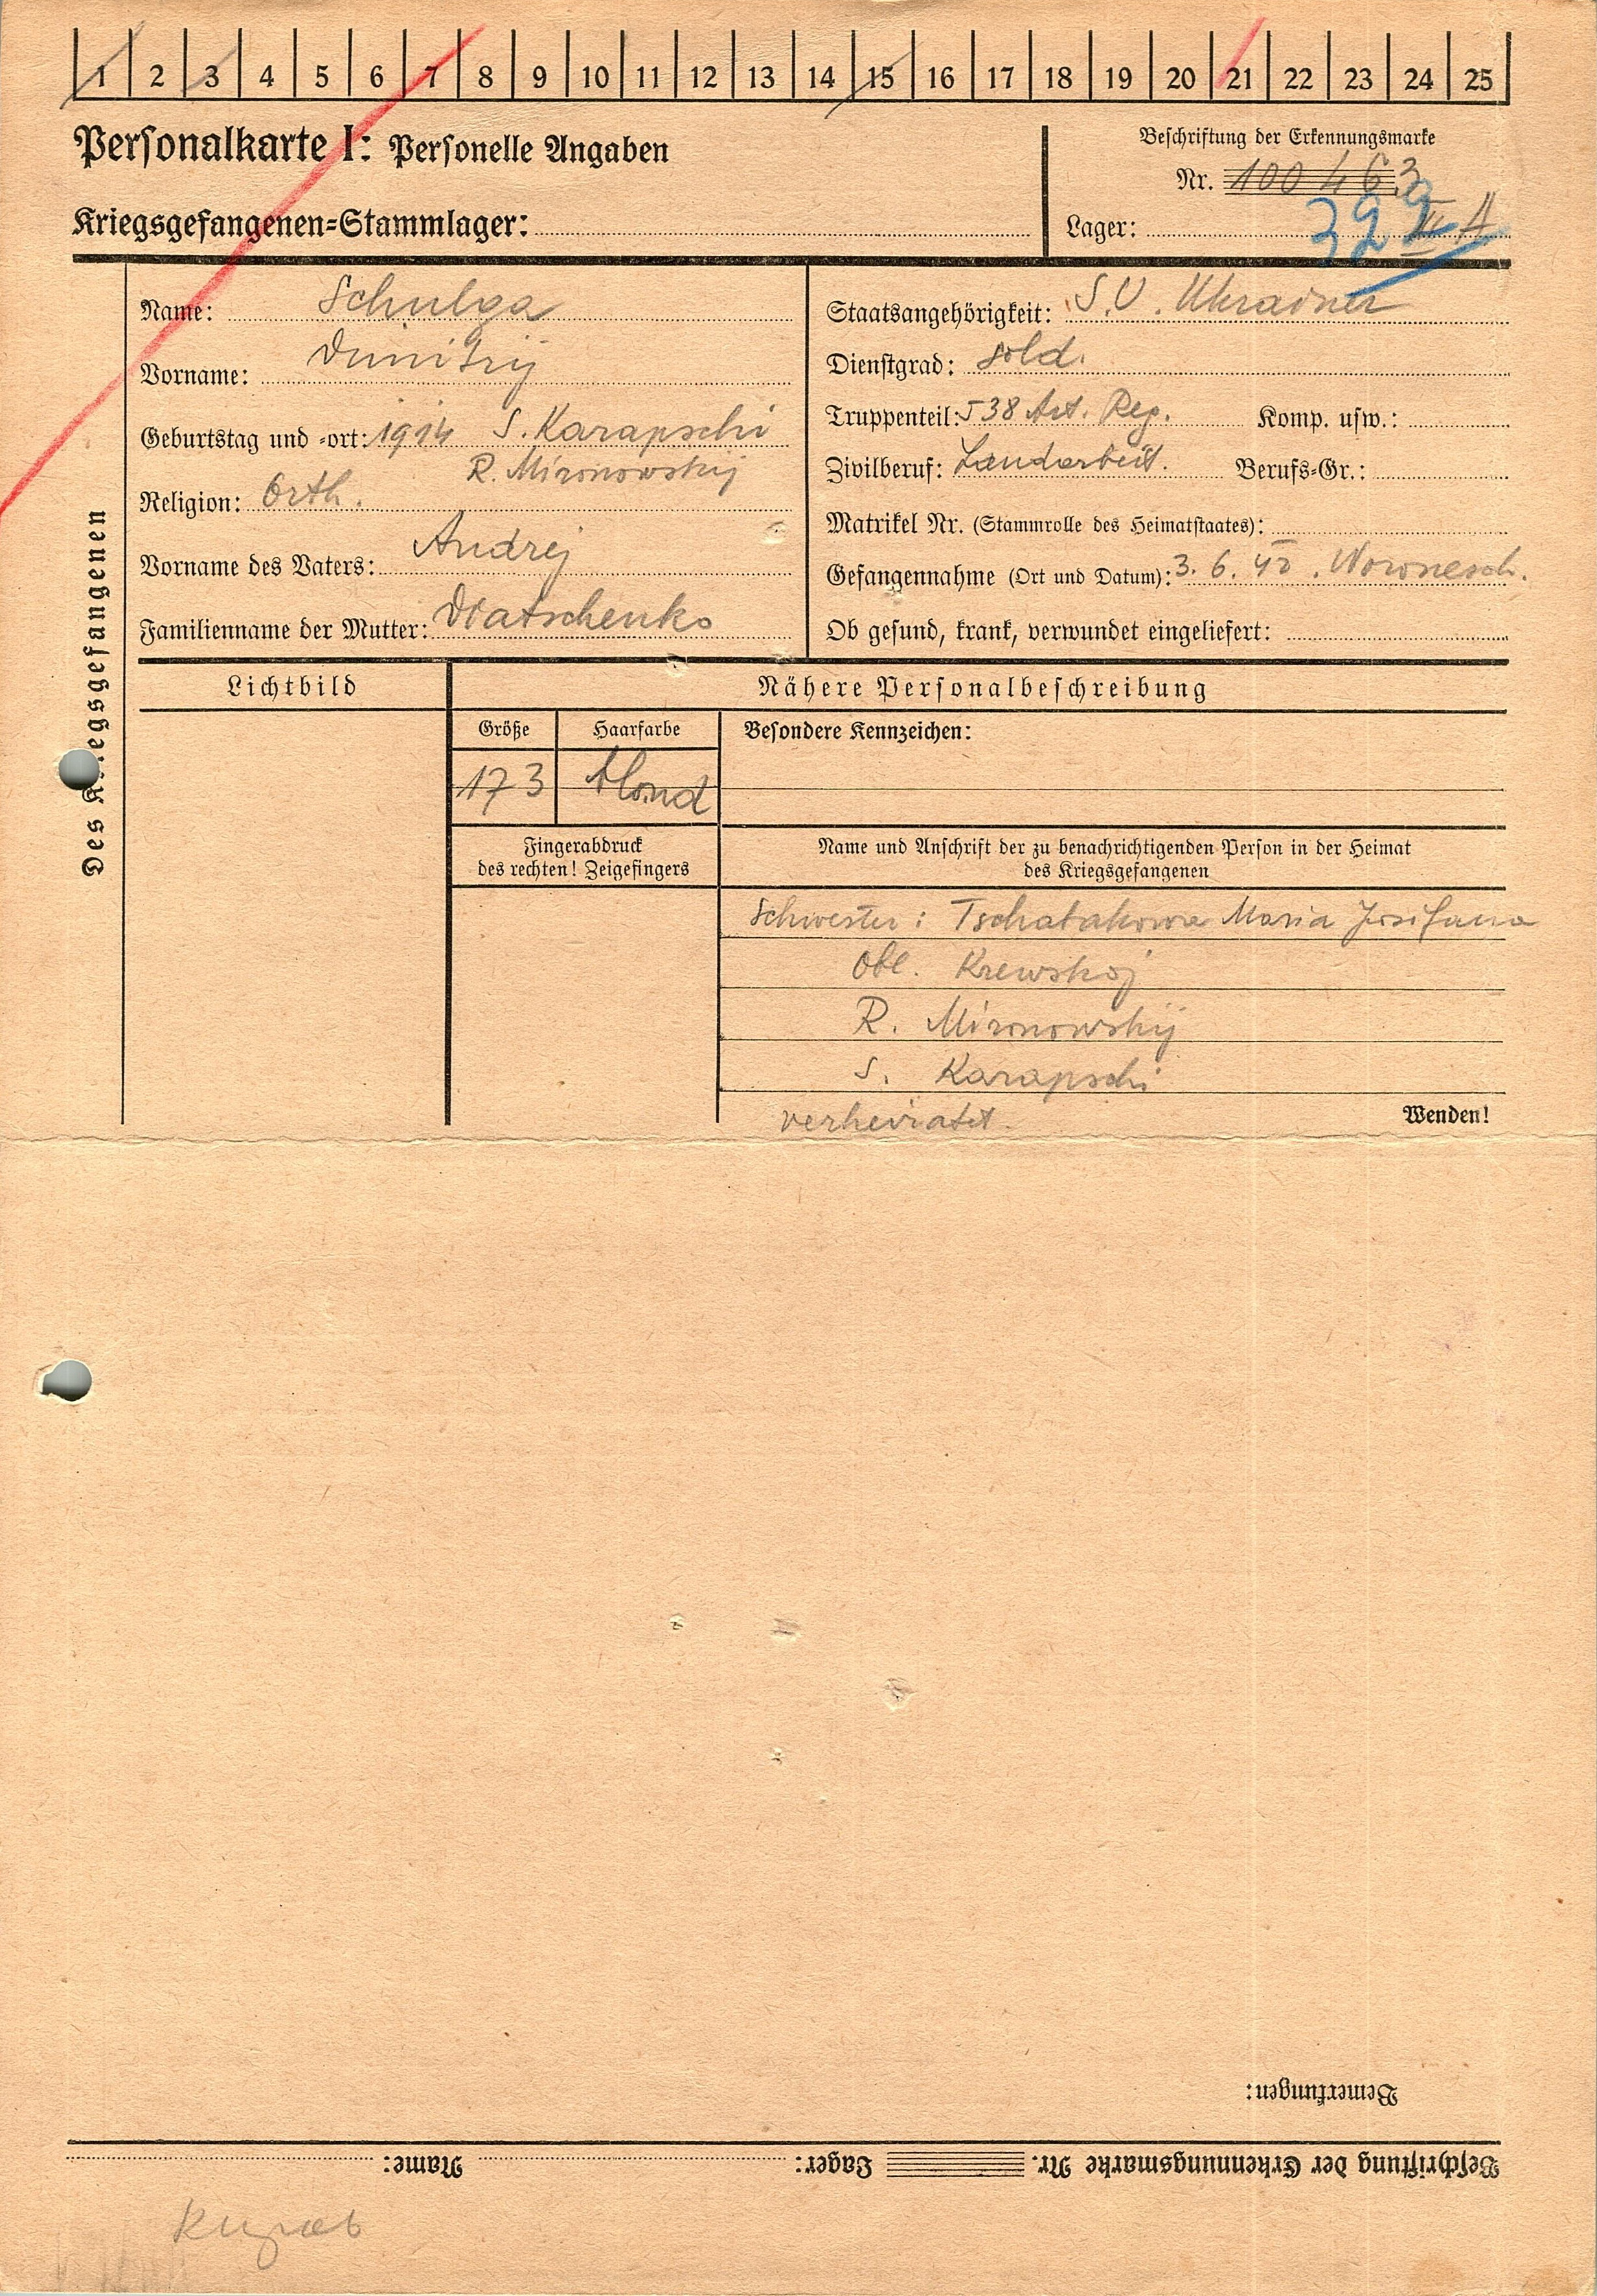 1 2 3 4 5 6 7 8 9 10 11 12 13 14 15 16 17 18 19 20 21 22 23 24 25
Personalkarte I: Personelle Angaben
Kriegsgefangenen-Stammlager:
Beschriftung der Erkennungsmarke
Nr. 100463
Lager: II A
329
Des Kriegsgefangenen
Name: Schulga
Vorname: Dimitrij
Geburtstag und -ort: 1914 S. Karapschi
R. Mironowskij
Religion: Orth.
Vorname des Vaters: Andrej
Familienname der Mutter: Diatschenko
Staatsangehörigkeit: S.U. Ukrainer
Dienstgrad: Sold.
Truppenteil: 538 Art. Reg. Komp. usw.:
Zivilberuf: Landarbeit. Berufs-Gr.:
Matrikel Nr. (Stammrolle des Heimatstaates):
Gefangennahme (Ort und Datum): 3. 6. 42. Woronesch.
Ob gesund, krank, verwundet eingeliefert:
Lichtbild
Nähere Personalbeschreibung
Größe Haarfarbe Besondere Kennzeichen:
173 blond
Fingerabdruck
des rechten! Zeigefingers
Name und Anschrift der zu benachrichtigenden Person in der Heimat
des Kriegsgefangenen
Schwester: Tschabakowa Maria
Obl. Kiewskoj
R. Mironowskij
S. Karapschi
verheiratet.
Wenden!
Bemerkungen:
Beschriftung der Erkennungsmarke Nr. Lager: Name: